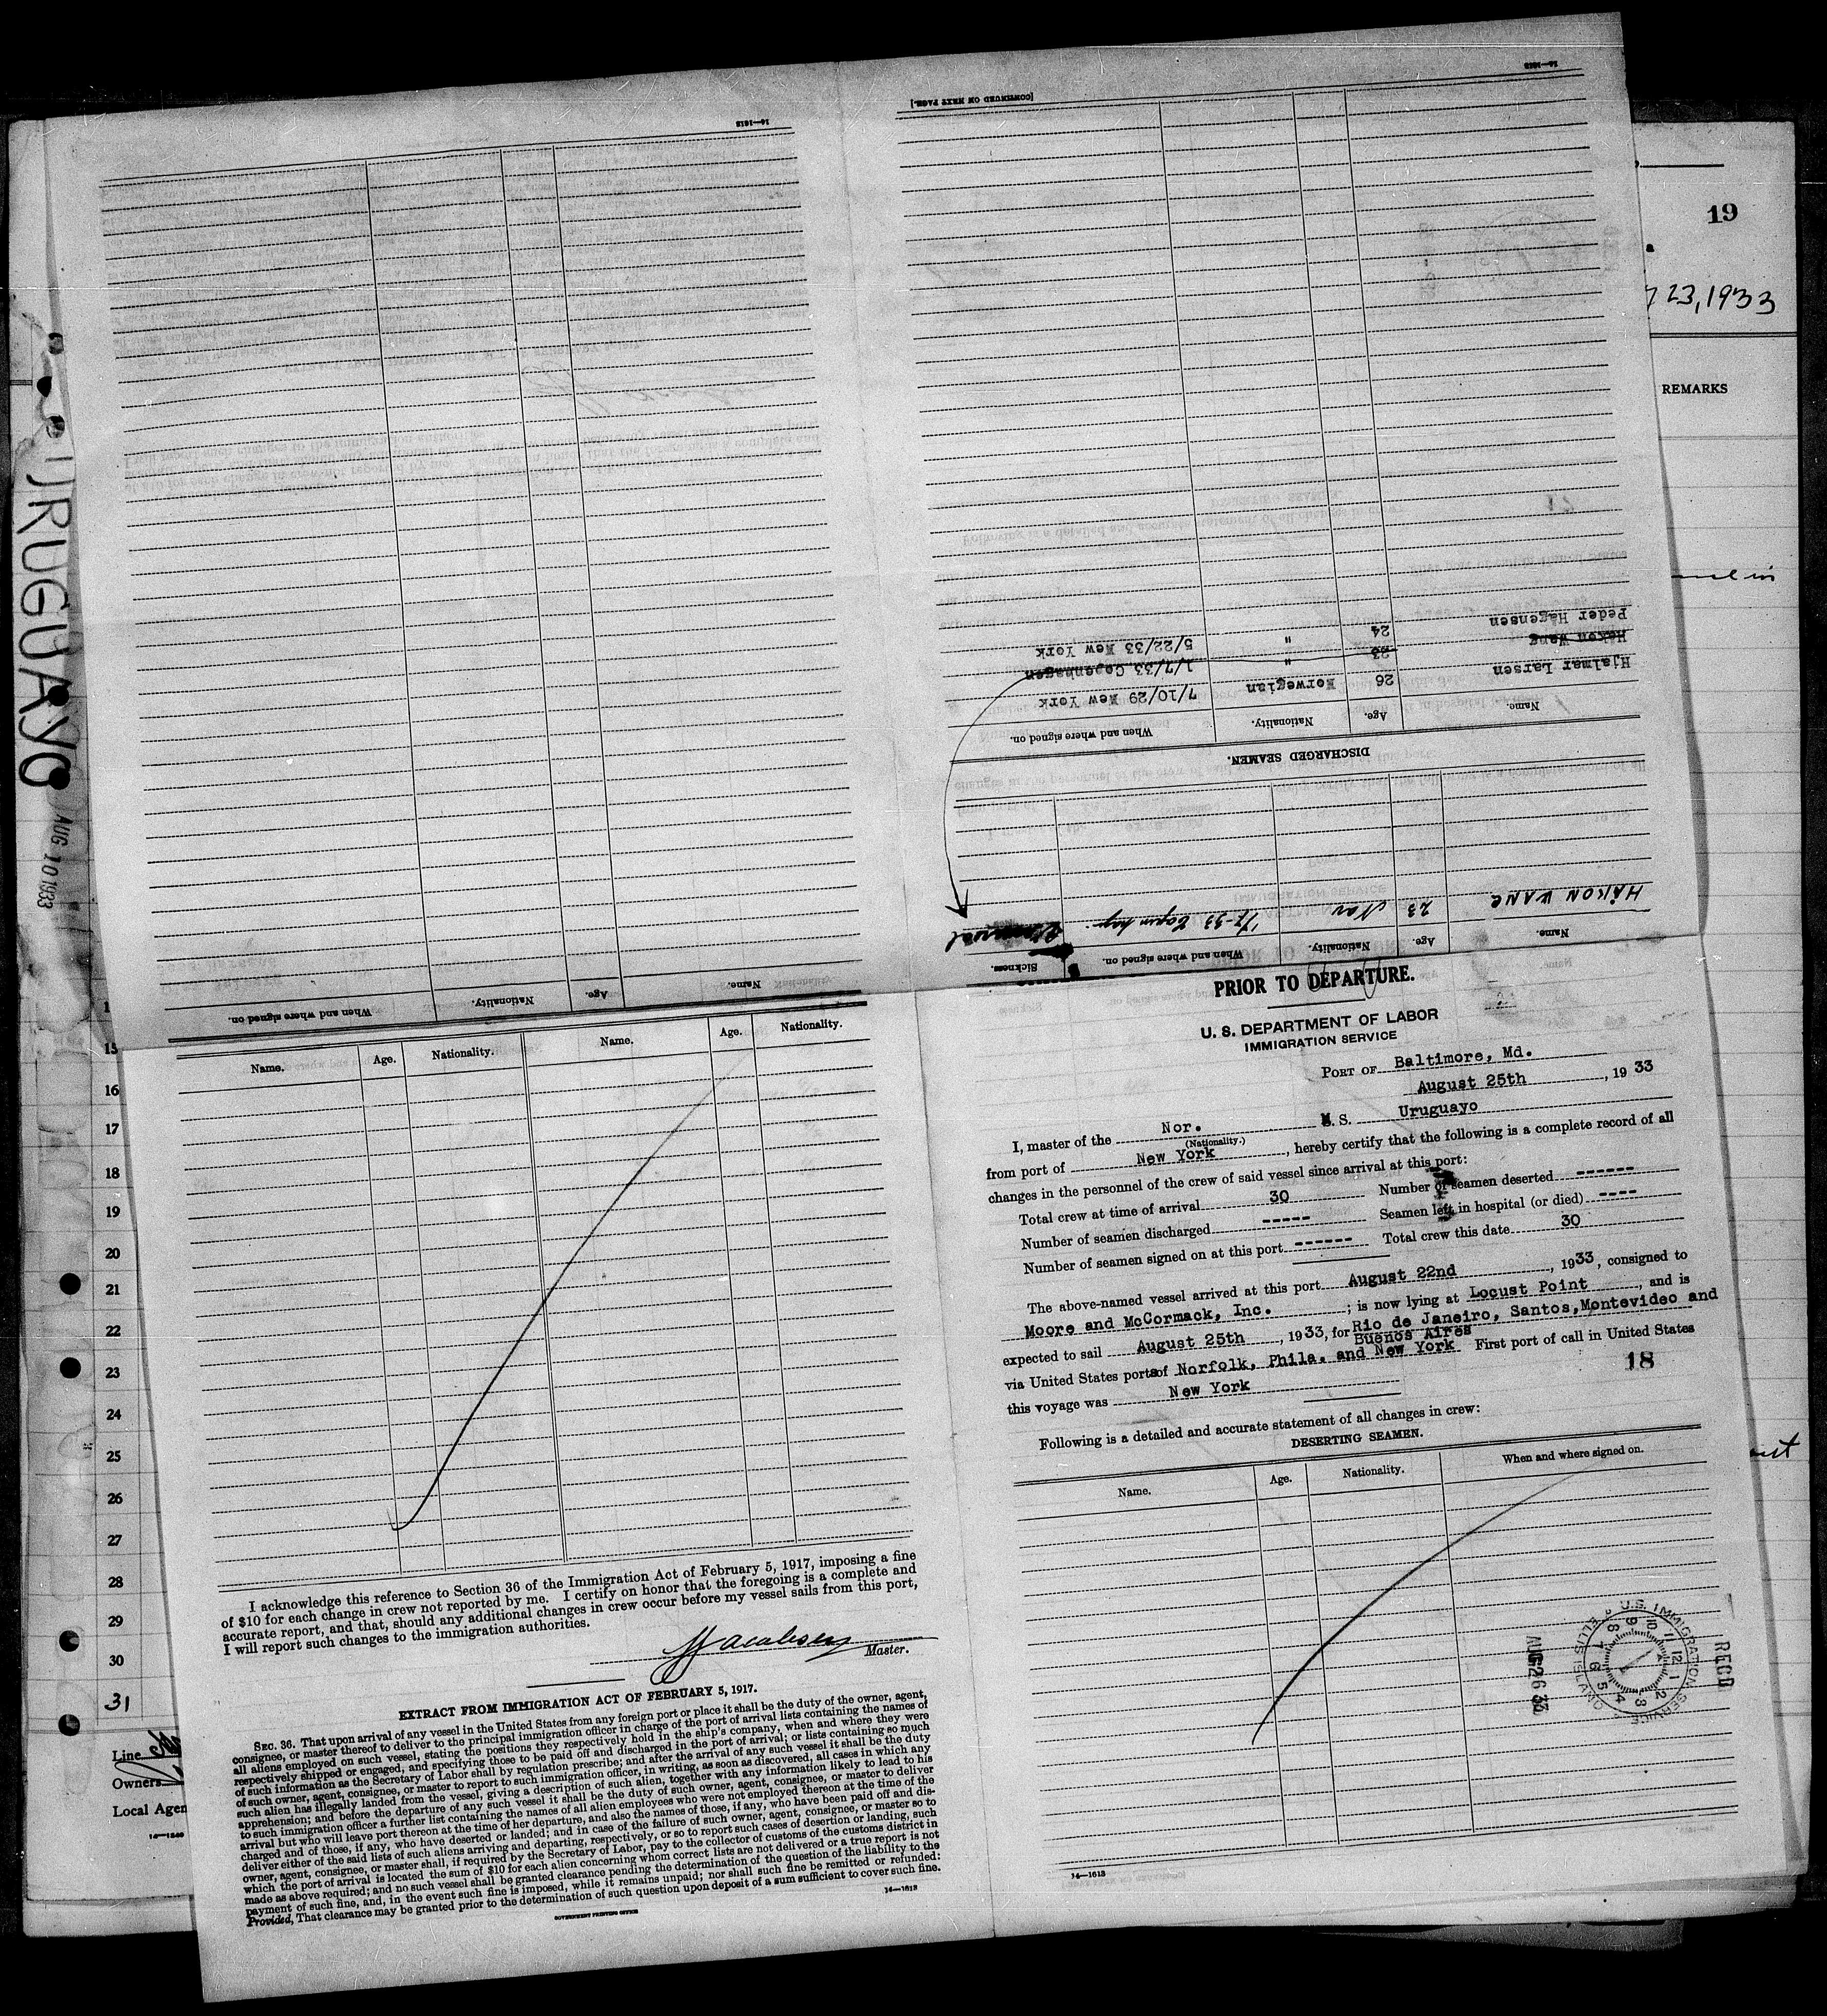 19
23, 1933
REMARKS
URUGUAYO
AUG 10 1933
PRIOR TO DEPARTURE.
U. S. DEPARTMENT OF LABOR
IMMIGRATION SERVICE
PORT OF Baltimore, Md.
August 25th, 1933
I, master of the Nor. M. S. Uruguayo
(Nationality.)
from port of New York, hereby certify that the following is a complete record of all
changes in the personnel of the crew of said vessel since arrival at this port:
Total crew at time of arrival 30 Number of seamen deserted ------
Number of seamen discharged ----- Seamen left in hospital (or died) ----
Number of seamen signed on at this port ------ Total crew this date 30
The above-named vessel arrived at this port August 22nd, 1933, consigned to
Moore and McCormack, Inc.; is now lying at Locust Point, and is
expected to sail August 25th, 1933, for Rio de Janeiro, Santos, Montevideo and
Buenos Aires
via United States ports of Norfolk, Phila. and New York First port of call in United States
this voyage was New York
18
Following is a detailed and accurate statement of all changes in crew:
DESERTING SEAMEN.
Name. Age. Nationality. When and where signed on.
RECD
U.S. IMMIGRATION SERVICE
ELLIS ISLAND
AUG 26 33
14—1613
Name. Age. Nationality. When and where signed on. Sickness.
HAKON WANG 23 Nor 1/7-33 Copenhag.
DISCHARGED SEAMEN.
Name. Age. Nationality. When and where signed on.
Hjalmar Larsen 26 Norwegian 7/10/29 New York
Hakon Wang 23 " 1/7/33 Copenhagen
Peder Hågensen 24 " 5/22/33 New York
[CONTINUED ON NEXT PAGE.]
14—1613
Name. Age. Nationality. When and where signed on.
14—1613
Name. Age. Nationality. Name. Age. Nationality.
I acknowledge this reference to Section 36 of the Immigration Act of February 5, 1917, imposing a fine
of $10 for each change in crew not reported by me. I certify on honor that the foregoing is a complete and
accurate report, and that, should any additional changes in crew occur before my vessel sails from this port,
I will report such changes to the immigration authorities.
Jacobsen
Master.
EXTRACT FROM IMMIGRATION ACT OF FEBRUARY 5, 1917.
SEC. 36. That upon arrival of any vessel in the United States from any foreign port or place it shall be the duty of the owner, agent,
consignee, or master thereof to deliver to the principal immigration officer in charge of the port of arrival lists containing the names of
all aliens employed on such vessel, stating the positions they respectively hold in the ship's company, when and where they were
respectively shipped or engaged, and specifying those to be paid off and discharged in the port of arrival; or lists containing so much
of such information as the Secretary of Labor shall by regulation prescribe; and after the arrival of any such vessel it shall be the duty
of such owner, agent, consignee, or master to report to such immigration officer, in writing, as soon as discovered, all cases in which any
such alien has illegally landed from the vessel, giving a description of such alien, together with any information likely to lead to his
apprehension; and before the departure of any such vessel it shall be the duty of such owner, agent, consignee, or master to deliver
to such immigration officer a further list containing the names of all alien employees who were not employed thereon at the time of the
arrival but who will leave port thereon at the time of her departure, and also the names of those, if any, who have been paid off and dis-
charged and of those, if any, who have deserted or landed; and in case of the failure of such owner, agent, consignee, or master so to
deliver either of the said lists of such aliens arriving and departing, respectively, or so to report such cases of desertion or landing, such
owner, agent, consignee, or master shall, if required by the Secretary of Labor, pay to the collector of customs of the customs district in
which the port of arrival is located the sum of $10 for each alien concerning whom correct lists are not delivered or a true report is not
made as above required; and no such vessel shall be granted clearance pending the determination of the question of the liability to the
payment of such fine, and, in the event such fine is imposed, while it remains unpaid; nor shall such fine be remitted or refunded:
Provided, That clearance may be granted prior to the determination of such question upon deposit of a sum sufficient to cover such fine.
GOVERNMENT PRINTING OFFICE
14—1613
15
16
17
18
19
20
21
22
23
24
25
26
27
28
29
30
31
Line
Owners
Local Agen